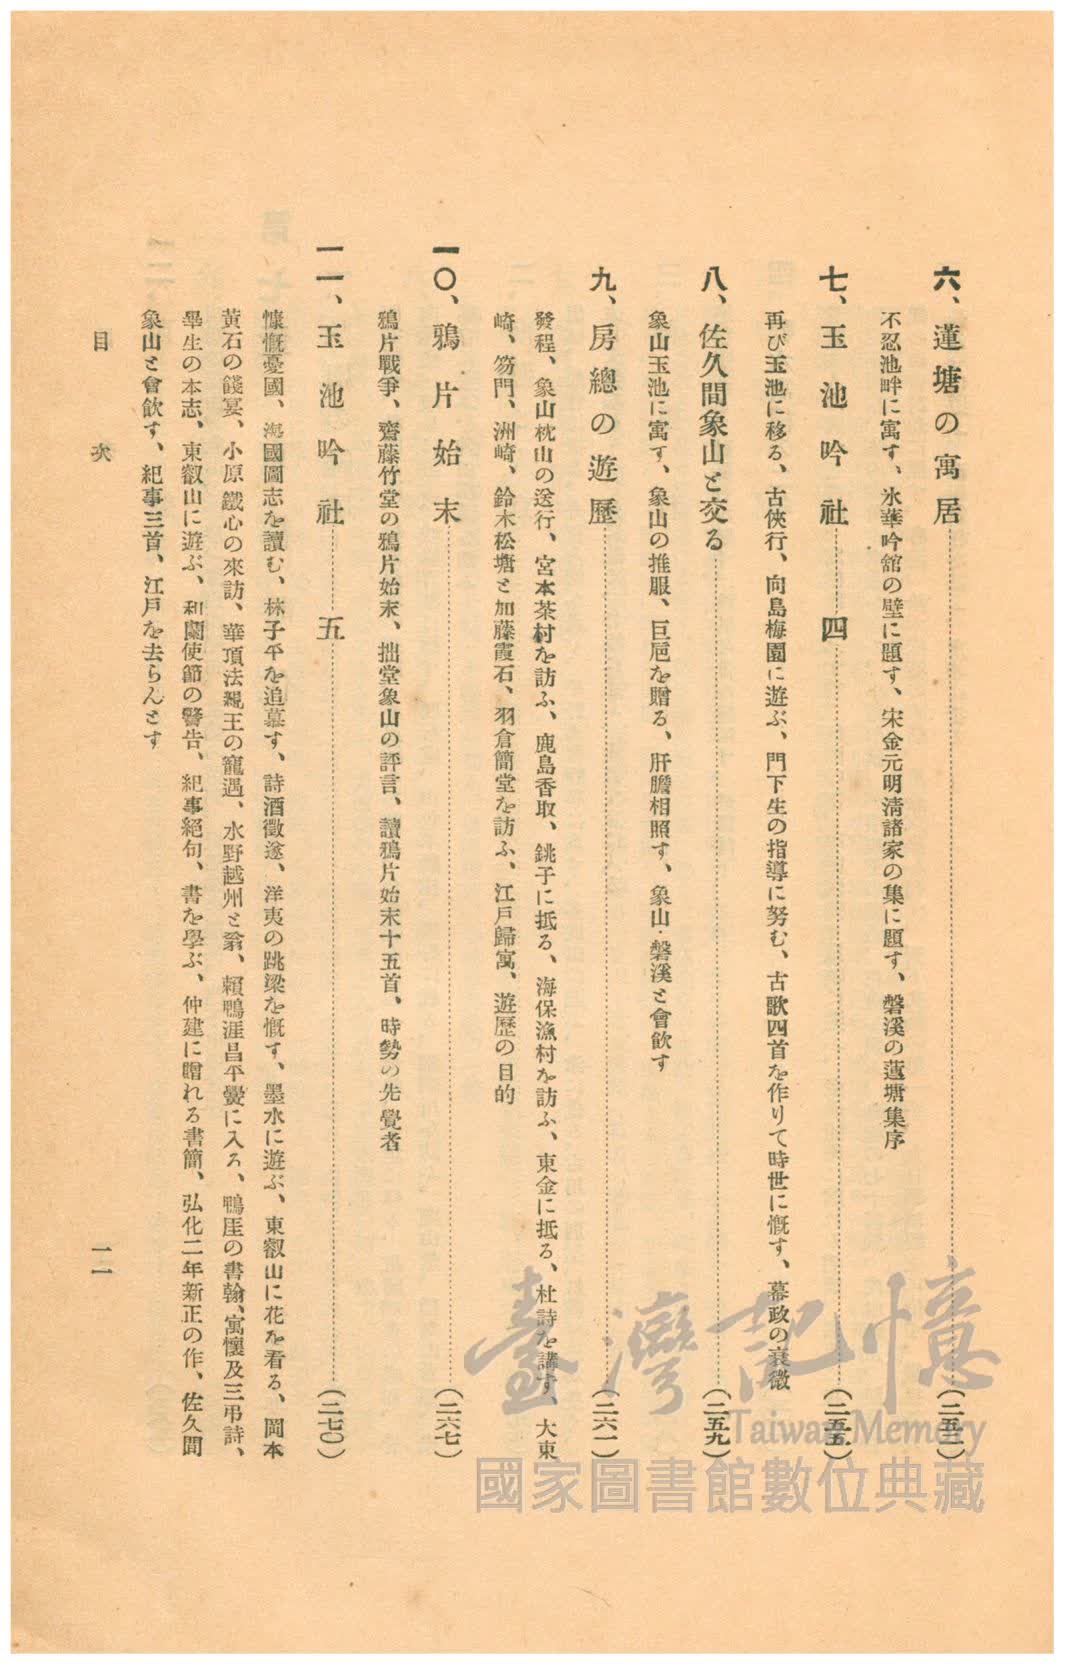 六、蓮塘の寓居……(二五二)
不忍池畔に寓す、氷華吟館の壁に題す、宋金元明清諸家の集に題す、磐溪の蓮塘集序
七、玉池吟社　四……(二五五)
再び玉池に移る、古俠行、向島梅園に遊ぶ、門下生の指導に努む、古歌四首を作りて時世に慨す、幕政の衰微
八、佐久間象山と交る……(二五九)
象山玉池に寓す、象山の推服、巨卮を贈る、肝膽相照す、象山・磐溪と會飮す
九、房總の遊歷……(二六一)
發程、象山枕山の送行、宮本茶村を訪ふ、鹿島香取、銚子に抵る、海保漁村を訪ふ、東金に抵る、杜詩を講す、大東
崎、笏門、洲崎、鈴木松塘と加藤霞石、羽倉簡堂を訪ふ、江戸歸寓、遊歷の目的
一〇、鴉片始末……(二六七)
鴉片戰爭、齋藤竹堂の鴉片始末、拙堂象山の評言、讀鴉片始末十五首、時勢の先覺者
一一、玉池吟社　五……(二七〇)
慷慨憂國、海國圖志を讀む、林子平を追慕す、詩酒徵逐、洋夷の跳梁を慨す、墨水に遊ぶ、東叡山に花を看る、岡本
黃石の餞宴、小原鐵心の來訪、華頂法親王の寵遇、水野越州と翁、賴鴨涯昌平黌に入る、鴨厓の書翰、寓懷及三弔詩、
畢生の本志、東叡山に遊ぶ、和蘭使節の警告、紀事絕句、書を學ぶ、仲建に贈れる書簡、弘化二年新正の作、佐久間
象山と會飮す、紀事三首、江戸を去らんとす
目次
一一
臺灣記憶
Taiwan Memory
國家圖書館數位典藏